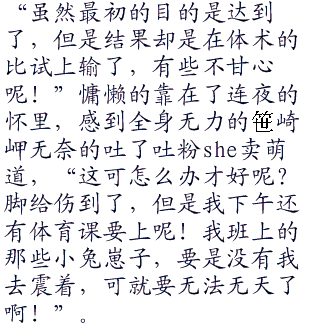 “虽然最初的目的是达到
了，但是结果却是在体术的
比试上输了，有些不甘心
呢！”慵懒的靠在了连夜的
怀里，感到全身无力的笹崎
岬无奈的吐了吐粉she卖萌
道，“这可怎么办才好呢？
脚给伤到了，但是我下午还
有体育课要上呢！我班上的
那些小兔崽子，要是没有我
去震着，可就要无法无天了
啊！”。